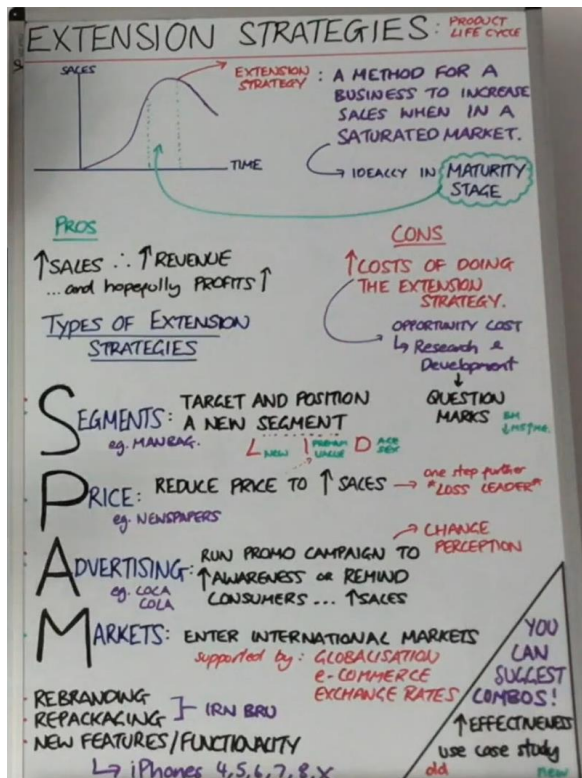 EXTENSION STRATEGIES: PRODUCT
LIFE CYCLE
SALES
TIME
EXTENSION
STRATEGY
: A METHOD FOR A
BUSINESS TO INCREASE
SALES WHEN IN A
SATURATED MARKET.
↳ IDEALLY IN MATURITY
STAGE
PROS
↑SALES ∴ ↑REVENUE
...and hopefully PROFITS↑
CONS
↑COSTS OF DOING
THE EXTENSION
STRATEGY.
OPPORTUNITY COST
↳ Research &
Development
↓
QUESTION
MARKS
TYPES OF EXTENSION
STRATEGIES
SEGMENTS: TARGET AND POSITION
A NEW SEGMENT
eg. MANBAG.
L NEW I PREMIUM VALUE D AGE SEX
PRICE: REDUCE PRICE TO ↑SALES → one step further
"LOSS LEADER"
eg. NEWSPAPERS
ADVERTISING: RUN PROMO CAMPAIGN TO → CHANGE
PERCEPTION
↑AWARENESS OR REMIND
CONSUMERS ... ↑SALES
eg. COCA
COLA
MARKETS: ENTER INTERNATIONAL MARKETS
supported by: GLOBALISATION
e-COMMERCE
EXCHANGE RATES
· REBRANDING
· REPACKAGING ]- IRN BRU
· NEW FEATURES/FUNCTIONALITY
↳ iPhones 4,5,6,7,8,X
YOU
CAN
SUGGEST
COMBOS!
↑EFFECTIVENESS
use case study
old new